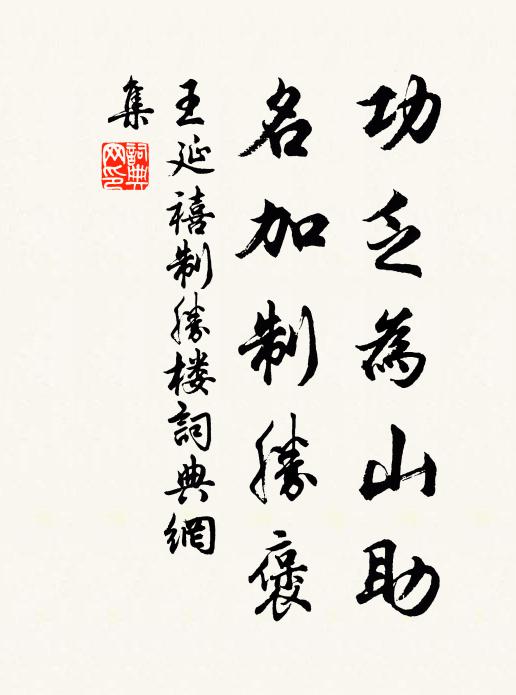 功乏為山助
名加制勝褒
王延禧制勝楼詞典網
集
詞典
网印